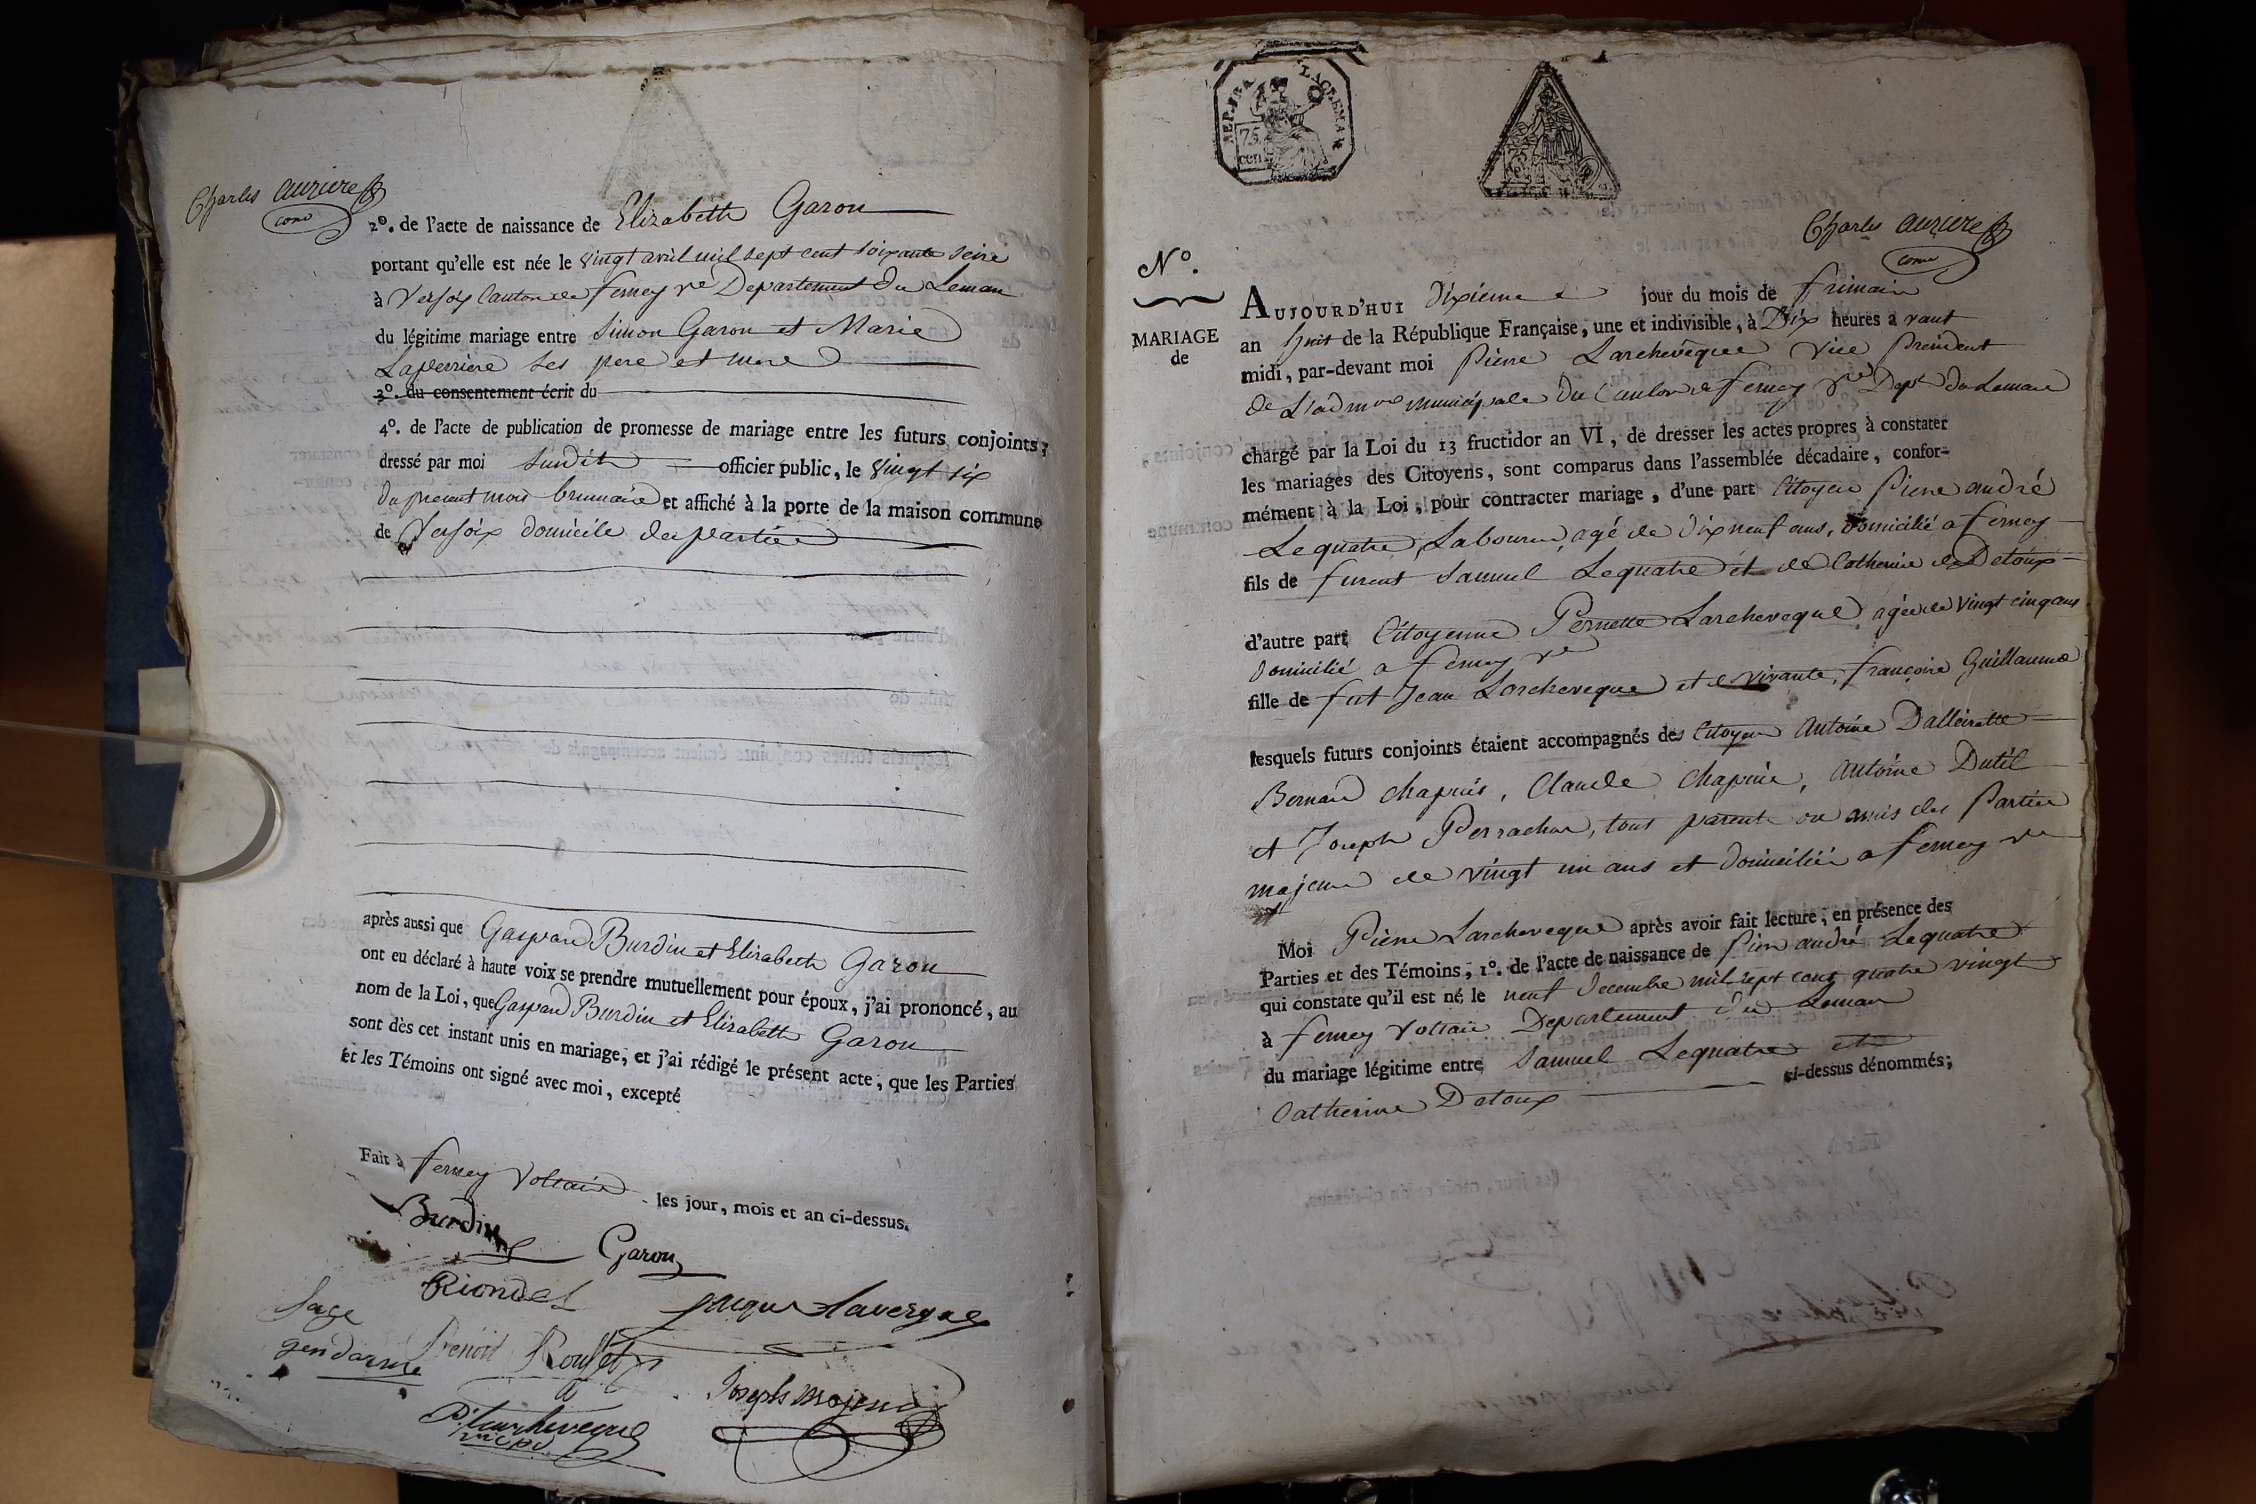 Charles auziere
com
2º. de l'acte de naissance de Elizabeth Garon
portant qu'elle est née le vingt avril mil sept cent soixante seize
à Versoix Canton de ferney re Departement du Leman
du légitime mariage entre Simon Garon et Marie
Laperriere ses pere et mere
3º. du consentement écrit du
4º. de l'acte de publication de promesse de mariage entre les futurs conjoints ;
dressé par moi susdit officier public, le vingt six
du present mois brumaire et affiché à la porte de la maison commune
de Versoix domicile des parties
après aussi que Gaspard Burdin et Elizabeth Garon
ont eu déclaré à haute voix se prendre mutuellement pour époux, j'ai prononcé, au
nom de la Loi, que Gaspard Burdin et Elizabeth Garon
sont dès cet instant unis en mariage, et j'ai rédigé le présent acte, que les Parties
et les Témoins ont signé avec moi, excepté
Fait à ferney Voltaire les jour, mois et an ci-dessus.
Burdin
Garon
Riondel
Jacque Lavergne
Sage
gendarme
Benoit Rousset
Joseph
P. Larcheveque
REP. FRA
75
cen
Charles auziere
com
Nº.
MARIAGE
de
AUJOURD'HUI Dixieme jour du mois de frimaire
an huit de la République Française, une et indivisible, à Dix heures avant
midi, par-devant moi Pierre Larcheveque vice President
de L'adm on municipale du Canton de ferney re Dept du Leman
chargé par la Loi du 13 fructidor an VI, de dresser les actes propres à constater
les mariages des Citoyens, sont comparus dans l'assemblée décadaire, confor-
mément à la Loi, pour contracter mariage, d'une part Citoyen Pierre andré
Lequatre, Laboureur, agé de Dix neuf ans, Domicilié a ferney
fils de furent Samuel Lequatre et de Catherine de Detoux
d'autre part Citoyenne Pernette Larcheveque agée de vingt cinq ans
Domicilié a ferney re
fille de fut Jean Larcheveque et vivante, françoise Guillaume
lesquels futurs conjoints étaient accompagnés des Citoyen Antoine
Bernard Chapuis, Claude Chapuis, Antoine Dutil
et Joseph Perrachon, tout parents ou amis des Parties
majeur de vingt un ans et domiciliés a ferney re
Moi Pierre Larcheveque après avoir fait lecture, en présence des
Parties et des Témoins, 1º. de l'acte de naissance de Pierre andré Lequatre
qui constate qu'il est né le neuf Decembre mil sept cent quatre vingt
à ferney Voltaire Departement du Leman
du mariage légitime entre Samuel Lequatre et
Catherine Detoux ci-dessus dénommés;